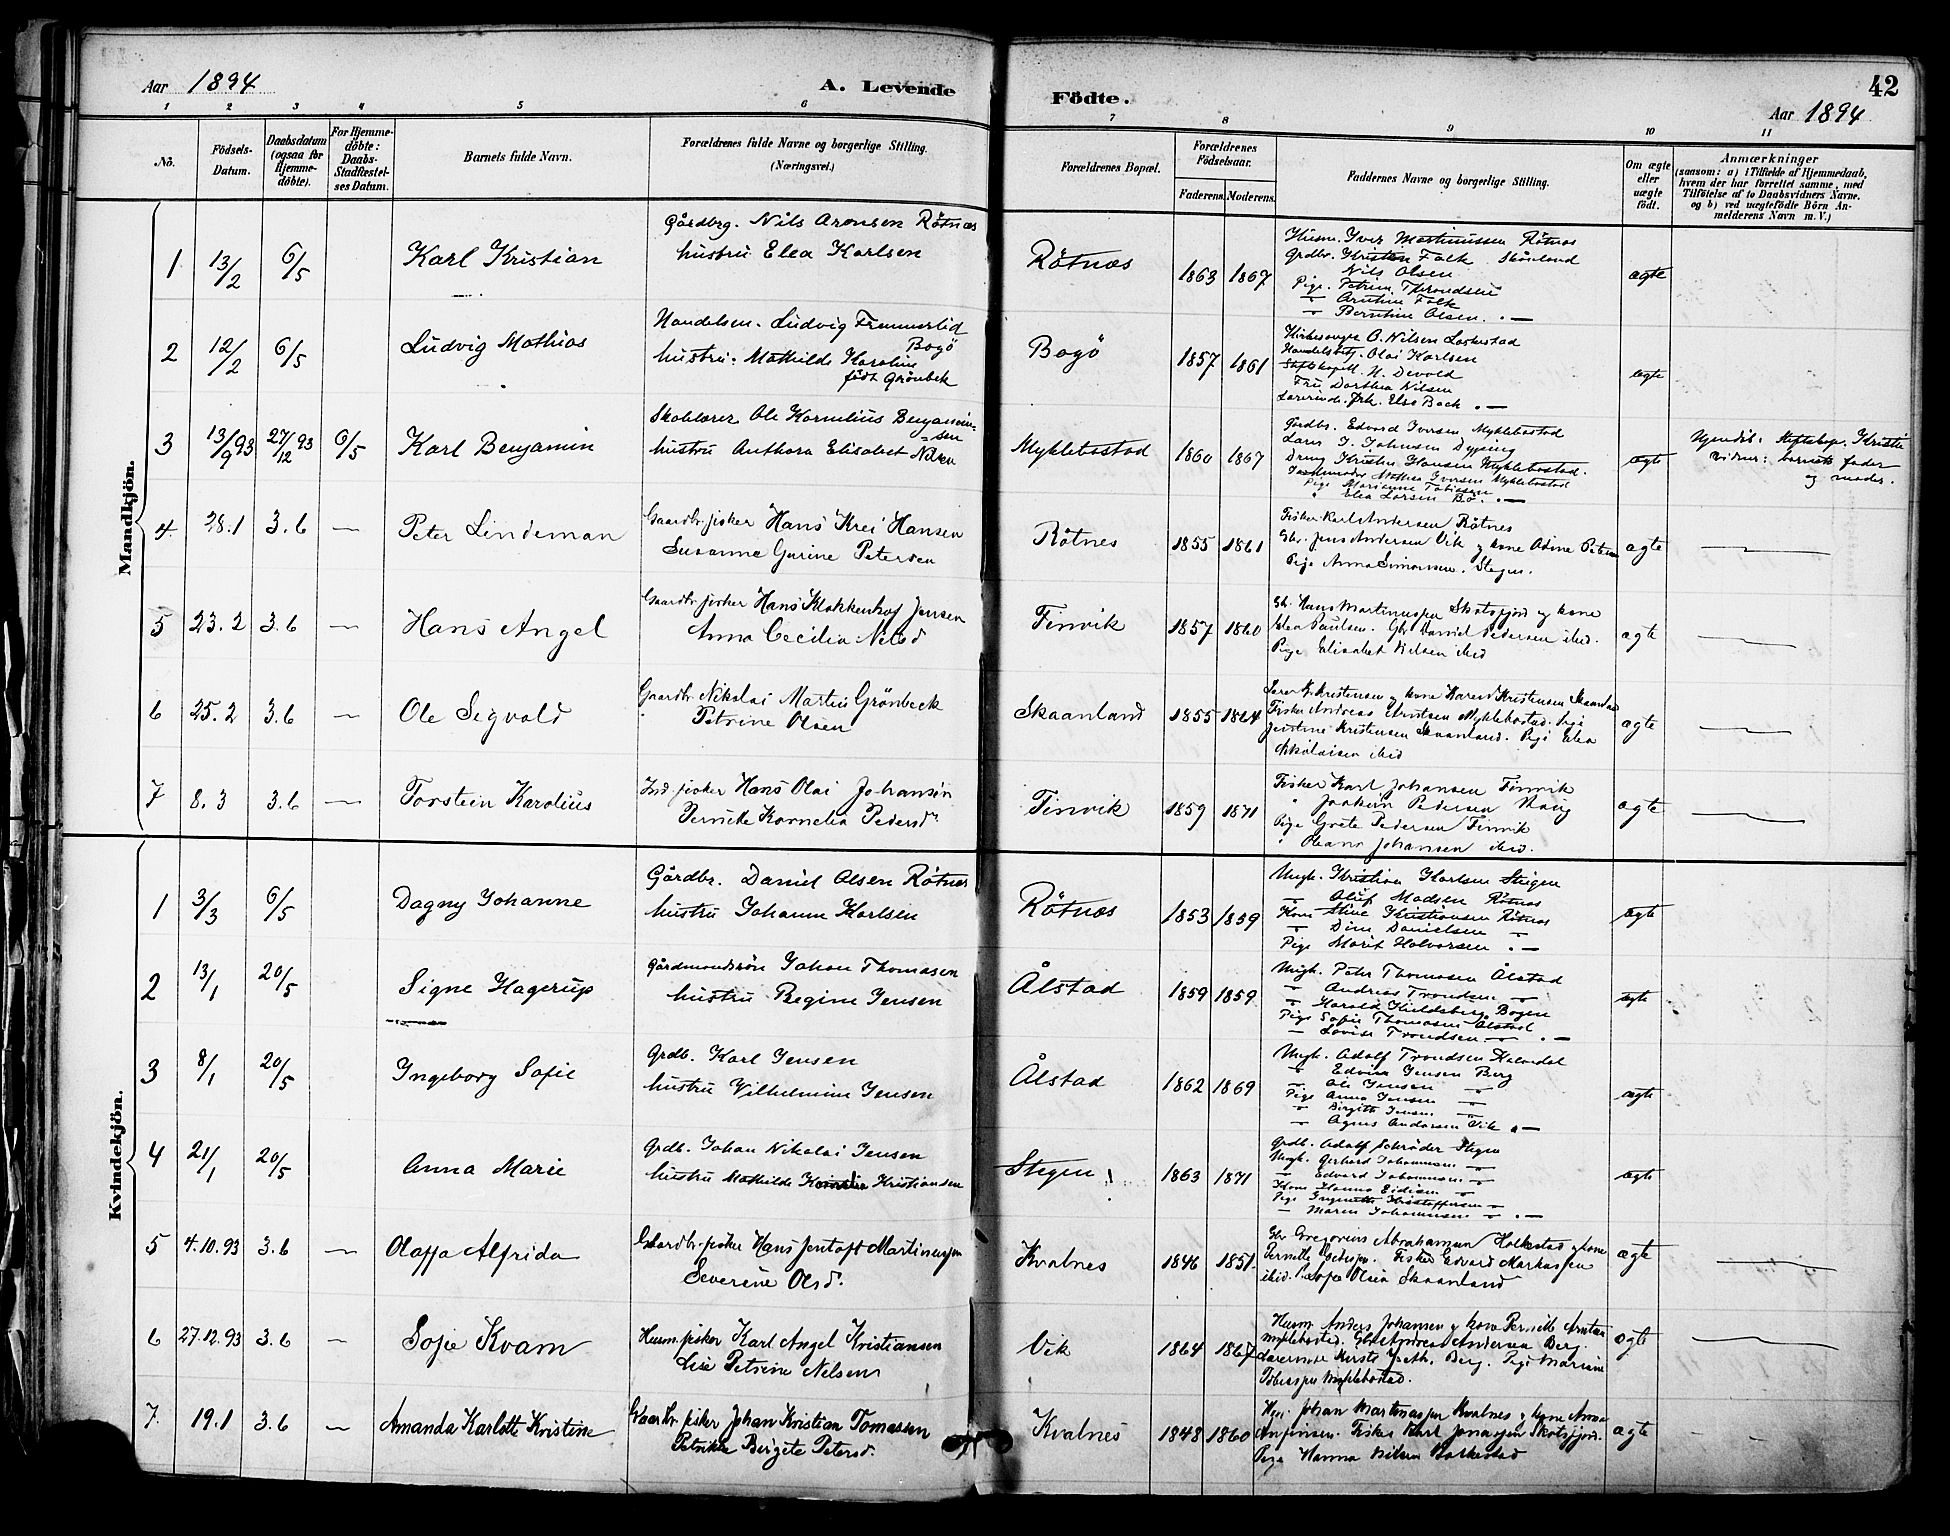 Aar 1894
A. Levende Födte.
42
Aar 1894
1 2 3 4 5 6 7 8 9 10 11
No.
Födsels-Datum.
Daabsdatum (ogsaa for Hjemmedöbte).
For Hjemmedöbte: Daabs-Stadfæstelses Datum.
Barnets fulde Navn.
Forældrenes fulde Navne og borgerlige Stilling. (Næringsvei.)
Forældrenes Bopæl.
Forældrenes Födselsaar.
Faderens. Moderens.
Faddernes Navne og borgerlige Stilling.
Om ægte eller uægte födt.
Anmærkninger
(saasom: a) i Tilfælde af Hjemmedaab, hvem der har forrettet samme, med Tilföielse af to Daabsvidners Navne. og b) ved uægtefödte Börn Anmelderens Navn m. V.)
Mandkjön.
1 13/2 6/5 Karl Kristian
Gårdbrg. Nils Aronsen Rötnæs
hustru Elea Karlsen
Rötnæs 1863 1867
Husm. Iver Martinussen Rötnæs
Grdbr. Kristen Falk Skånland
Nils Olsen
Pige. Petrine Throndsen
Falk
Berntine Olsen
ægte
2 12/2 6/5 Ludvig Mathias
Handelsm. Ludvig
Bogö
hustru: Mathilde Karoline
födt Grönbek
Bogö 1857 1861
Kirkesanger O. Nilsen
Olai Karlsen
Devold
Fru Dorthea Nilsen
Frk. Else Back
ægte
3 13/9 93 27/12 93 6/5 Karl Benjamin
Skolelærer Ole Kornelius Benjaminsen
hustru Anthora Elisabet Nilsen
Myklebostad 1860 1867
Edvard Iversen Myklebostad
Lærer J. Johnsen
Dreng Kristen Hansen Myklebostad.
Mathea Iversen Myklebostad
Pige Marianne Tobiassen
" Elea Larsen Bö
ægte
Hjemdöbt: Kristin
vidner: barnets fader
og moder.
4 28.1 3.6 — Peter Lindeman
Gaardbr. fisker Hans Krei Hansen
Susanna Gurine Petersen
Rötnes 1855 1861
Fisker Karl Andersen Rötnes
Gbr. Jens Andersen Vik og kone
Pige Anna Simonsen. Stegen.
ægte
5 23.2 3.6 — Hans Angel
Gaardbr. fisker Hans Klokkenhof Jensen
Anna Cecilia Nilsd
Finvik 1857 1860
Gb. Hans Martinussen Skotsfjord og kone
Elea Paulsen. Gbr Daniel Pedersen ibid.
Pige Elisabet Nilsen ibid
ægte
6 25.2 3.6 — Ole Sigvald
Gaardbr. Nikolai Martin Grønbeck
Petrine Olsen
Skaanland 1855 1864
Kristensen og kone Karen Kristensen Skaanland
Fisker Andreas Myklebostad. Pige
Justine Kristensen Skaanland. Pige Elea
Nikolaisen ibid
ægte
7 8.3 3.6 — Torstein Karolius
Ind. fisker Hans Olai Johansen
Pernille Kornelia Pedersd
Finvik 1859 1871
Fisker Karl Johansen Finvik
" Joakim Pedersen
Pige Grete Pedersen Finvik
" Oleana Johansen ibid.
ægte
Kvindekjön.
1 3/3 6/5 Dagny Johanne
Gårdbr. Daniel Olsen Rötnæs
hustru Johanna Karlsen
Rötnæs 1853 1859
Ungk. Kristian Karlsen Stegen
Oluf Madsen Rötnæs
Kone Stine Kristiansen Rötnæs
Dina Danielsen
Pige Marit Halvorsen
ægte
2 13/1 20/5 Signe Hagerup
Gårdmandssön Johan Thomasen
hustru Regine Jensen
Ålstad 1859 1859
Ungk. Peter Thomasen Ålstad
Andreas Trondsen
Harald Kieldsberg Bogen
Pige Sofie Thomasen Ålstad
Lovise Trondsen
ægte
3 8/1 20/5 Ingeborg Sofie
Grdb. Karl Jensen
hustru Vilhelmine Jensen
Ålstad 1862 1869
Ungk. Adolf Trondsen
Edvin Jensen Berg
Ole Jensen
Pige Anna Jensen
Birgitte Jensen
Agnes Andersen Vik
ægte
4 21/1 20/5 Anna Marie
Grdb. Johan Nikolai Jensen
hustru Mathilde Kristiansen
Stegen 1863 1871
Grdb. Adolf Schröder Stegen
Ungk. Gerhard Johannesen
Edvard Johannesen
Kone Hanna
Pige Kristoffersen
Maren Johannesen
ægte
5 4.10.93 3.6 — Olaffa Alfrida
Gaardbr. fisker Hans Jentoft Martinussen
Severine Olsd.
Kvalnes 1846 1851.
Gbr Gregorius Abrahamsen Holkestad og kone
Pernille. Fisker Edvard Markussen
ibid. Olsen Skaanland
ægte
6 27.12.93 3.6 — Sofie Kvam
Husm. fisker Karl Angel Kristiansen
Lise Petrine Nilsen
Vik 1864 1867
Husm Anders Johansen og kone Pernille
Myklebostad. Gbr Andreas Andersen Berg.
Berg. Pige Mariane
Tobiassen Myklebostad.
ægte
7. 19.1 3.6 — Amanda Karlotte Kristine
Gaardbr. fisker Johan Kristian Tomassen
Petrikke Birgite Petersd.
Kvalnes 1848 1860
Johan Martinussen Kvalnes og kone Anna
Fisker Karl Jonassen Skotsfjord.
Pige Hanna Nilsen Holkestad
ægte